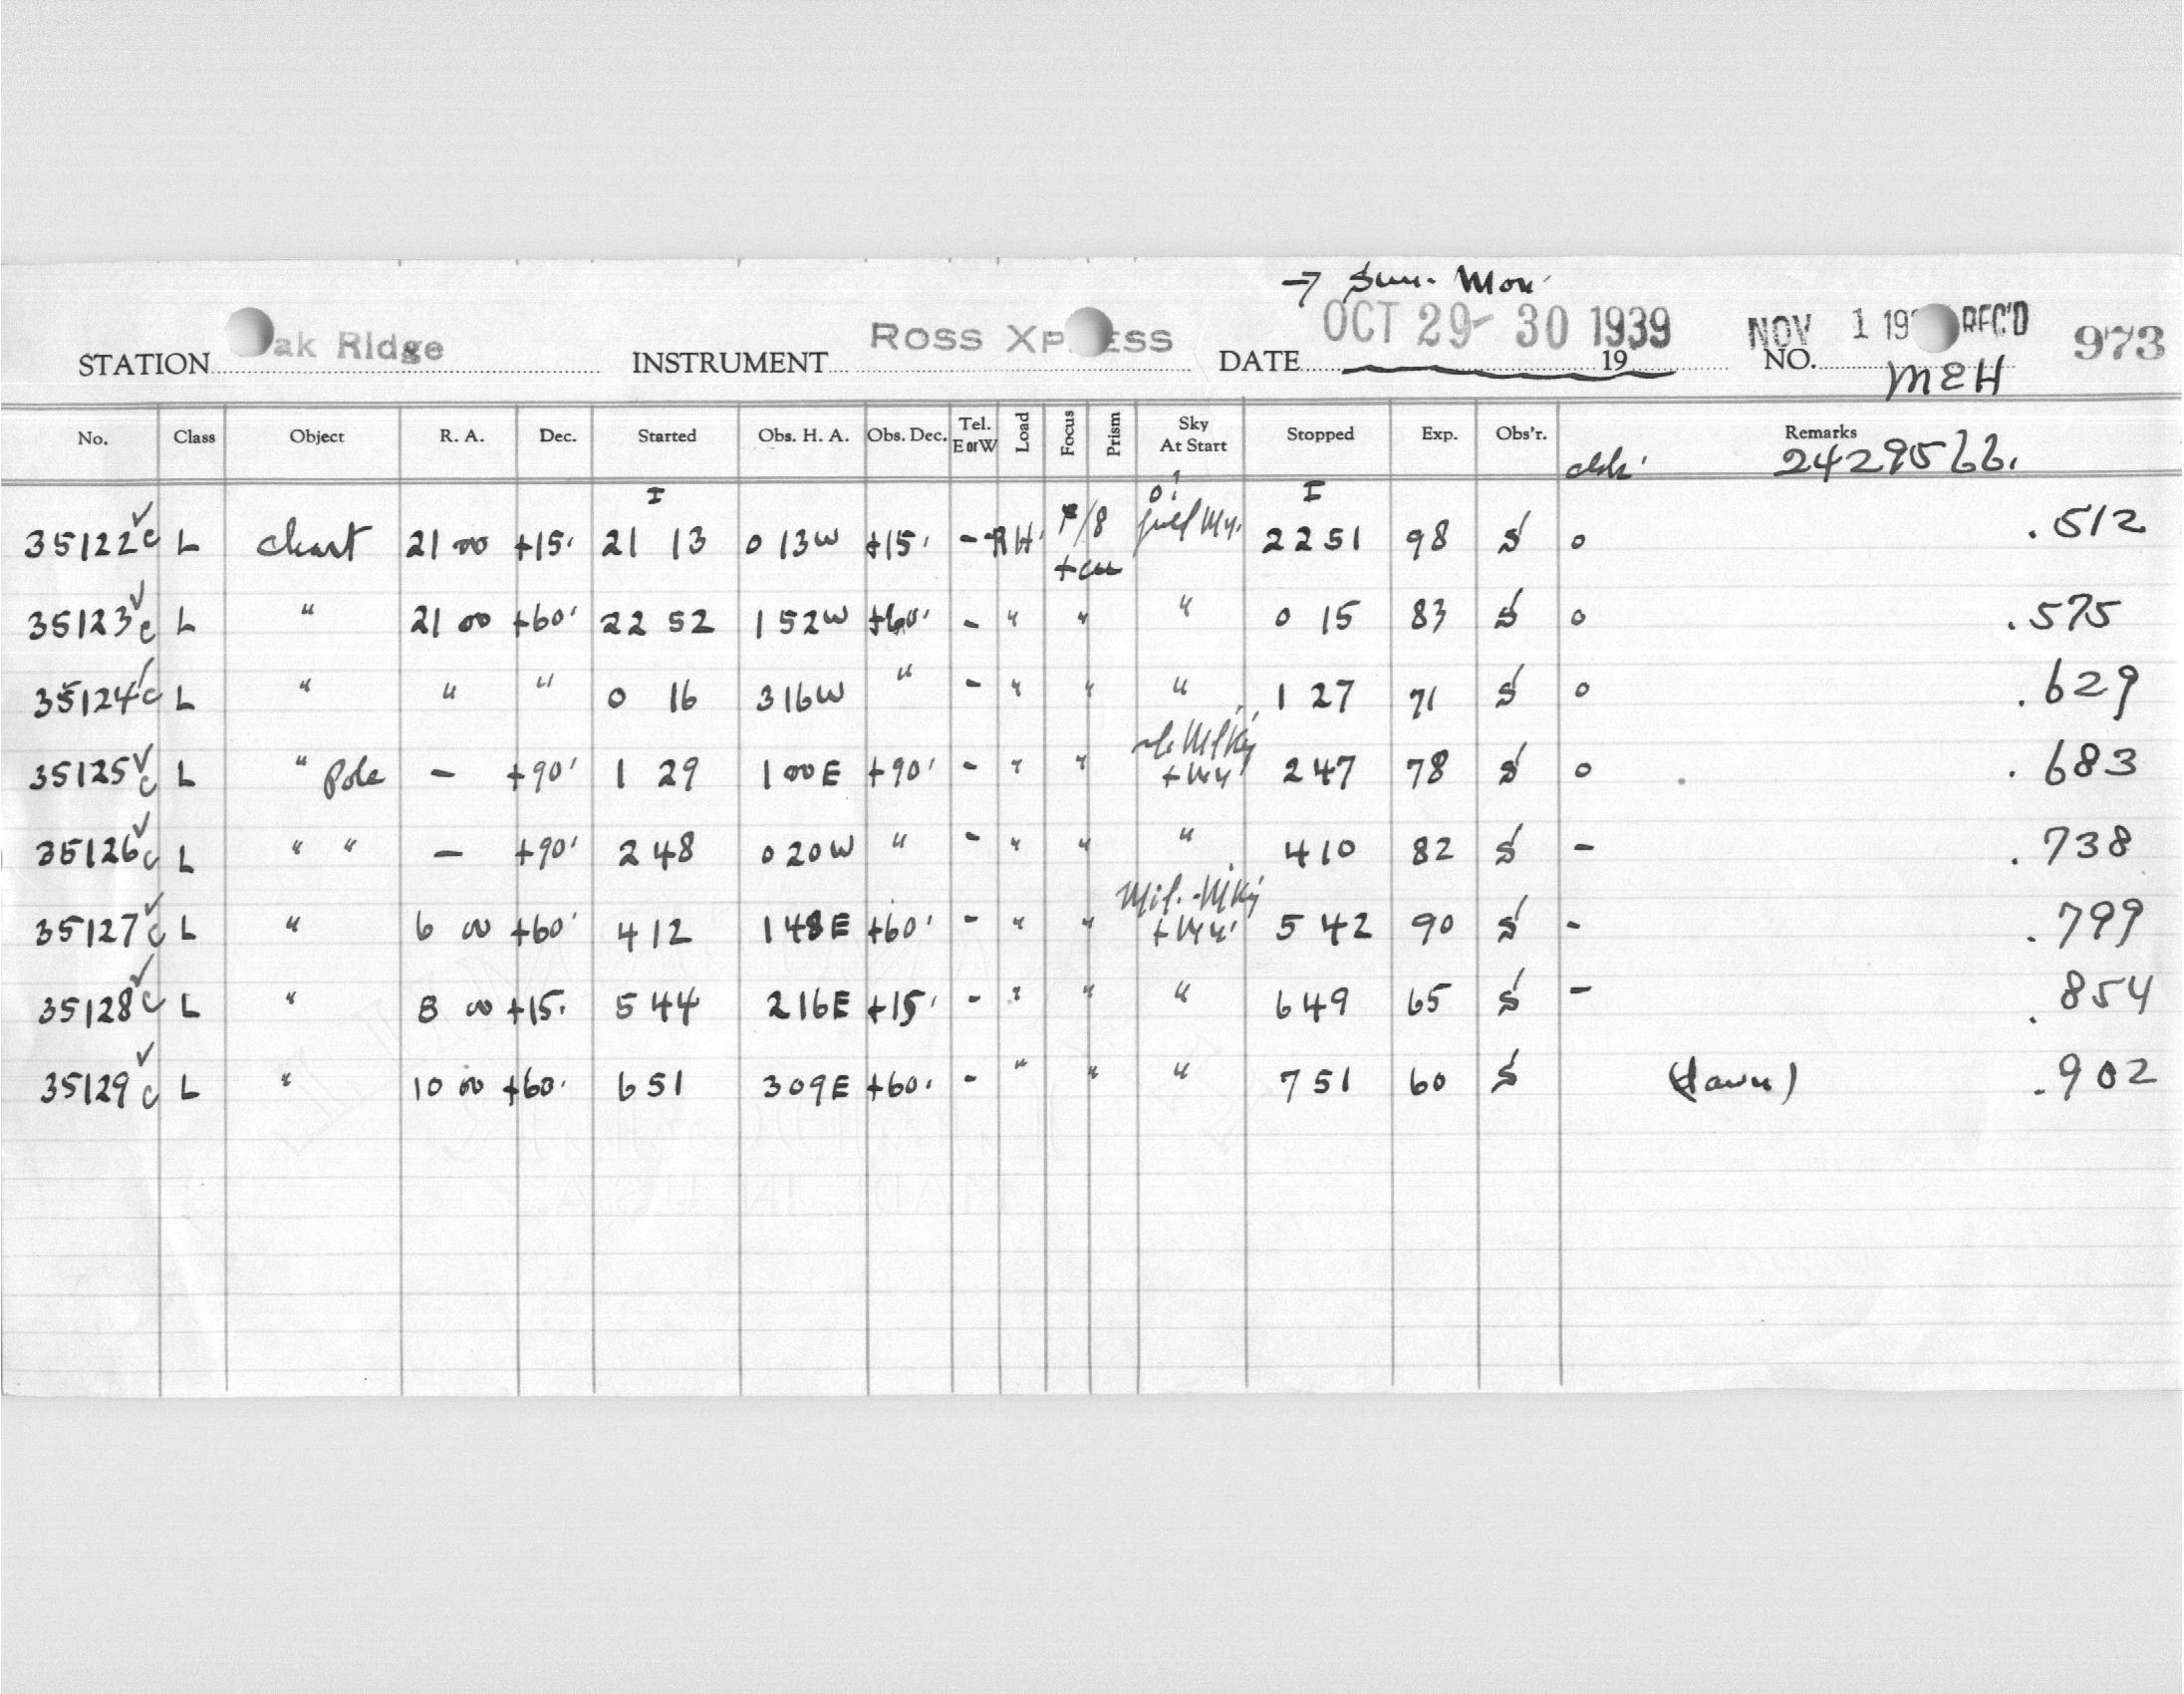 → Sun. Mon.
STATION Oak Ridge INSTRUMENT Ross Xpress DATE OCT 29-30 1939 19 NOV 1 19 REC'D NO. 973
MEH
No. Class Object R. A. Dec. Started Obs. H. A. Obs. Dec. Tel. E or W Load Focus Prism Sky At Start Stopped Exp. Obs'r. Remarks
2429566.
I I
35122 c L chart 21 00 +15. 21 13 0 13W +15. - RH. F/8 22 51 98 S 0 .512
35123 c L " 21 00 +60. 22 52 1 52W +60. - " " " 0 15 83 S 0 .575
35124 c L " " " 0 16 3 16W " - " " " 1 27 71 S 0 .629
35125 c L " Pole - +90. 1 29 1 00E +90. - " " 2 47 78 S 0 .683
35126 c L " " - +90. 2 48 0 20W " - " " " 4 10 82 S - .738
35127 c L " 6 00 +60. 4 12 1 48E +60. - " " 5 42 90 S - .799
35128 c L " 8 00 +15. 5 44 2 16E +15. - " " " 6 49 65 S - .854
35129 c L " 10 00 +60. 6 51 3 09E +60. - " " " 7 51 60 S (dawn) .902